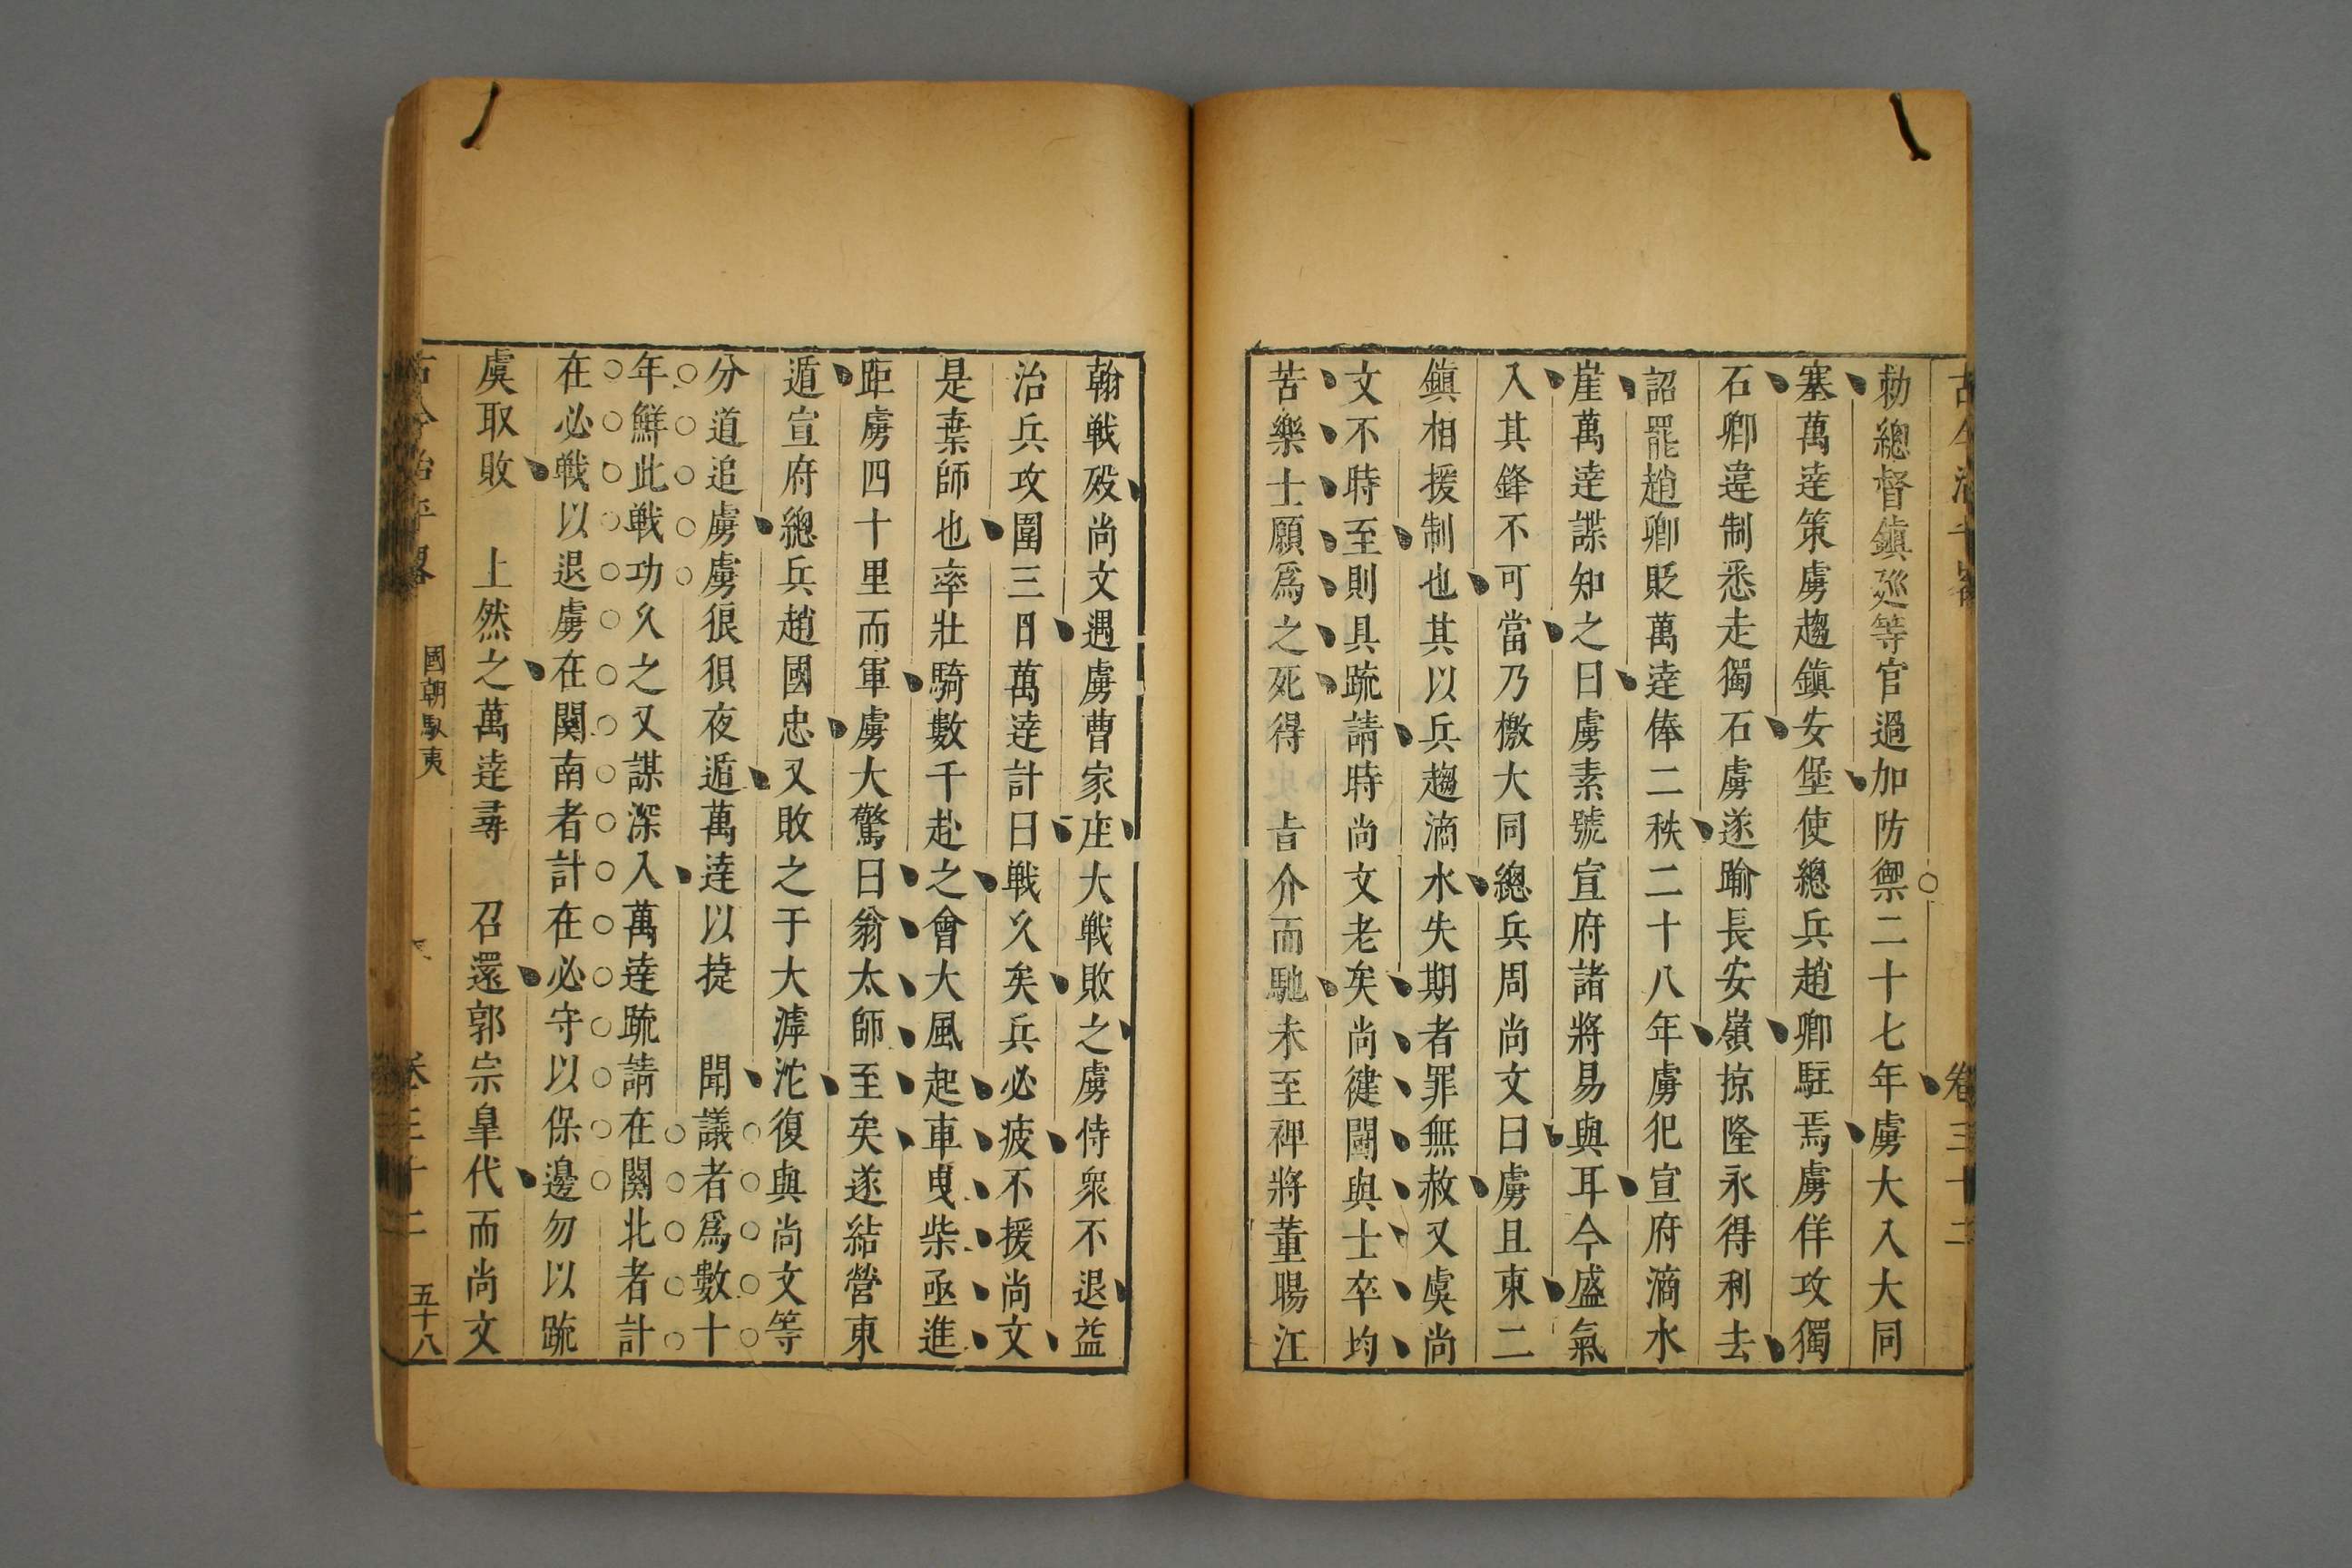 古今治平畧 卷三十二
勑總督鎮廵等官過加防禦二十七年虜大入大同
塞萬逹策虜趨鎮安堡使總兵趙卿駐焉虜佯攻獨
石卿違制悉走獨石虜遂踰長安嶺掠隆永得利去
詔罷趙卿貶萬逹俸二秩二十八年虜犯宣府滴水
崖萬逹諜知之曰虜素號宣府諸將易與耳今盛氣
入其鋒不可當乃檄大同總兵周尚文曰虜且東二
鎮相援制也其以兵趨滴水失期者罪無赦又虞尚
文不時至則具疏請時尚文老矣尚健鬭與士卒均
苦樂士願爲之死得 旨介而馳未至裨將董暘江
翰戰歿尚文遇虜曹家庄大戰敗之虜侍衆不退益
治兵攻圍三日萬逹計曰戰久矣兵必疲不援尚文
是棄師也率壯騎數千赴之會大風起車曳柴亟進
距虜四十里而軍虜大驚曰翁太師至矣遂結營東
遁宣府總兵趙國忠又敗之于大滹沱復與尚文等
分道追虜虜狼狽夜遁萬逹以捷 聞議者爲數十
年鮮此戰功久之又謀深入萬逹疏請在關北者計
在必戰以退虜在關南者計在必守以保邊勿以疏
虞取敗 上然之萬逹尋 召還郭宗臯代而尚文
古今治平畧 國朝馭夷 卷三十二 五十八